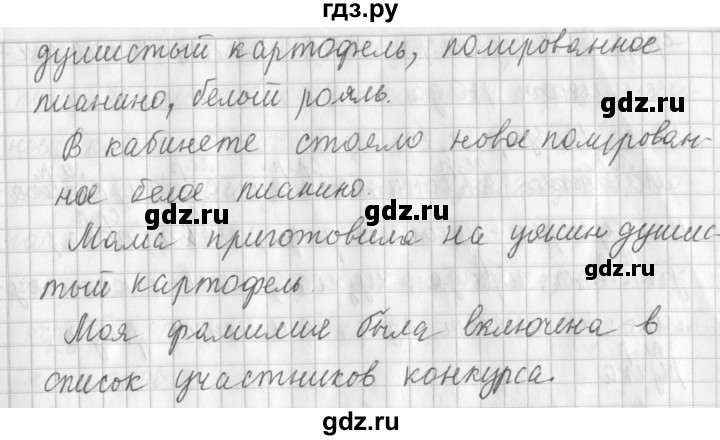 гдз.ру
душистый картофель, полированное
пианино, белый рояль.
gdz.ru
В кабинете стояло новое полирован-
ное белое пианино.
gdz.ru
gdz.ru
Мама приготовила на ужин душис-
тый картофель.
gdz.ru
Моя фамилия была включена в
список участников конкурса.
gdz.ru